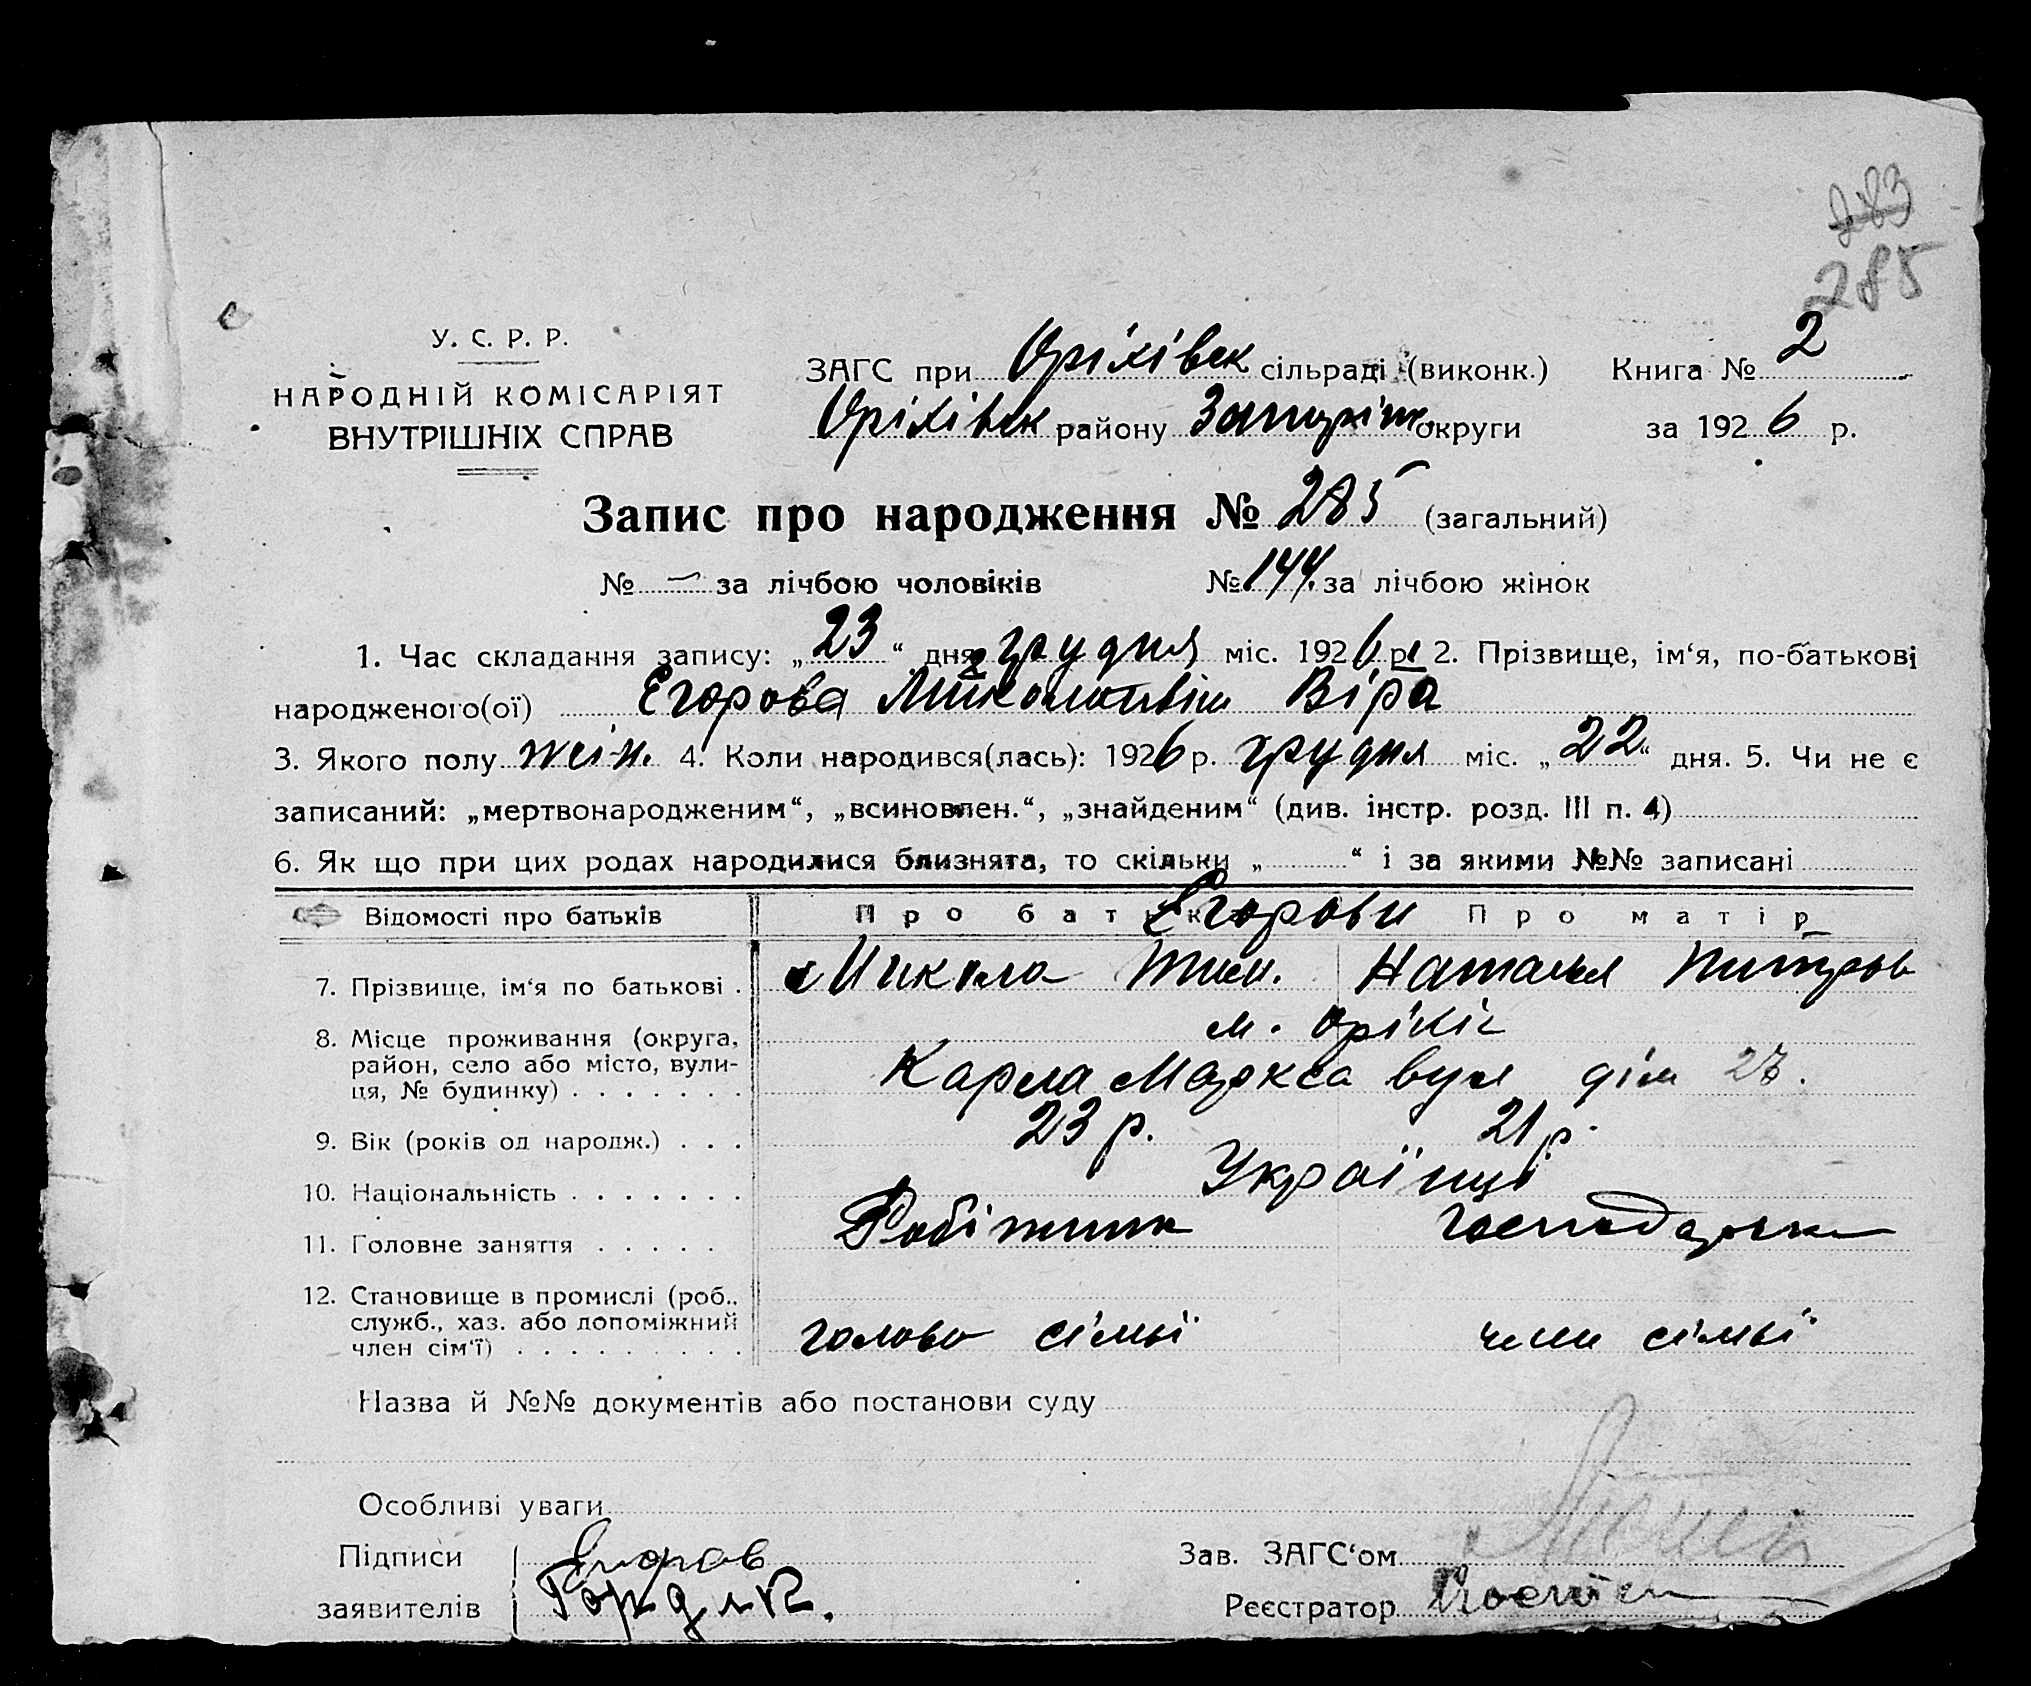 283
285
У. С. Р. Р.
НАРОДНІЙ КОМІСАРІЯТ
ВНУТРІШНІХ СПРАВ
ЗАГС при Оріхівск сільраді (виконк.) Книга № 2
Оріхівск району Запоріж. округи за 1926 р.
Запис про народження № 285 (загальний)
№ — за лічбою чоловіків № 144. за лічбою жінок
1. Час складання запису: „23“ дня грудня міс. 1926 р. 2. Прізвище, ім‘я, по-батькові
народженого(ої) Єгорова Віра
3. Якого полу жін. 4. Коли народився(лась): 1926 р. грудня міс. „22“ дня. 5. Чи не є
записаний: „мертвонародженим“, „всиновлен.“, „знайденим“ (див. інстр. розд. III п. 4)
6. Як що при цих родах народилися близнята, то скільки „ “ і за якими №№ записані
Відомості про батьків Про батька Єгорови Про матір
7. Прізвище, ім‘я по батькові . Микола Тим. Наталья
8. Місце проживання (округа, м. Оріхів
район, село або місто, вули-
ця, № будинку) . . . . . . . Карла Маркса вул дім 27.
9. Вік (років од народж.) . . . 23 р. 21 р.
10. Національність . . . . . . . Українці
11. Головне заняття . . . . . Робітник Господарка
12. Становище в промислі (роб.,
служб., хаз. або допоміжний
член сім‘ї) . . . . . . . . . голова сімьї член сімьї
Назва й №№ документів або постанови суду
Особливі уваги
Підписи Егоров Зав. ЗАГС‘ом
заявителів Реєстратор